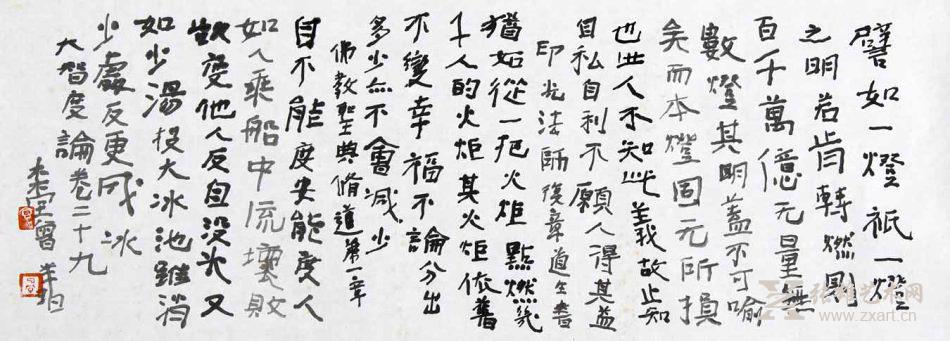 譬如一燈祇一燈
之明若肯轉燃則
百千萬億无量無
數燈其明蓋不可喻
矣而本燈固无所損
也世人不知此義故止知
自私自利不願人得其益
印光法師復章道生書
猶如從一把火炬點燃幾
千人的火炬其火炬依舊
不變幸福不論分出
多少亦不會減少
佛教聖典脩道第一章
自不能度安能度人
如人乘船中流壞敗
欲變他人反自没水又
如少湯投大冰池雖消
少處反更成冰
大智度論卷二十九
张雄艺术网
www.zxart.cn